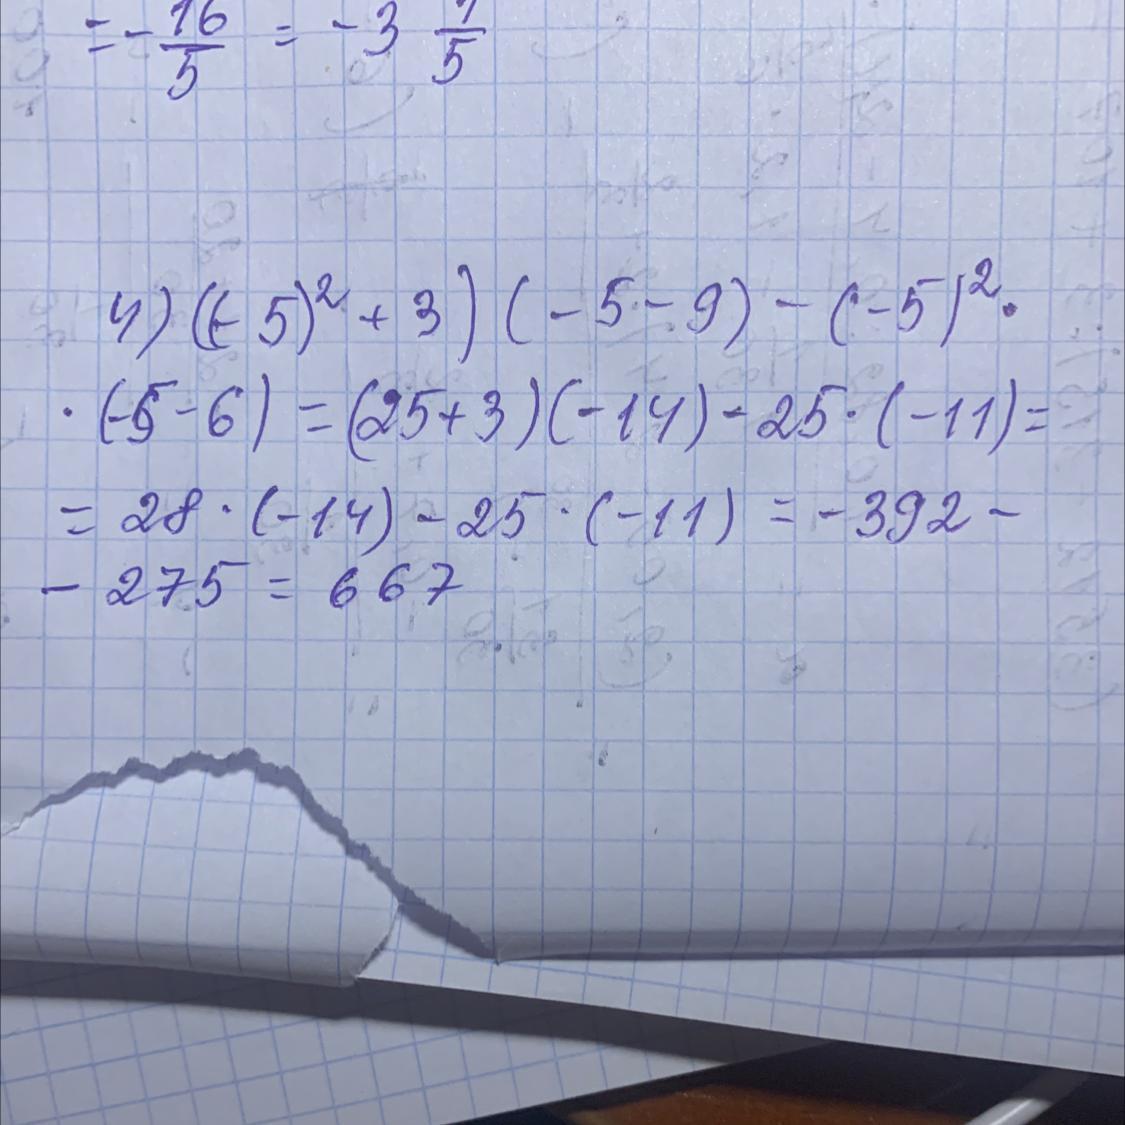 = - 16/5 = -3 1/5
4) ((-5)² + 3) (-5-9) - (-5)² ·
· (-5-6) = (25+3)(-14) - 25 · (-11) =
= 28 · (-14) - 25 · (-11) = -392 -
- 275 = 667